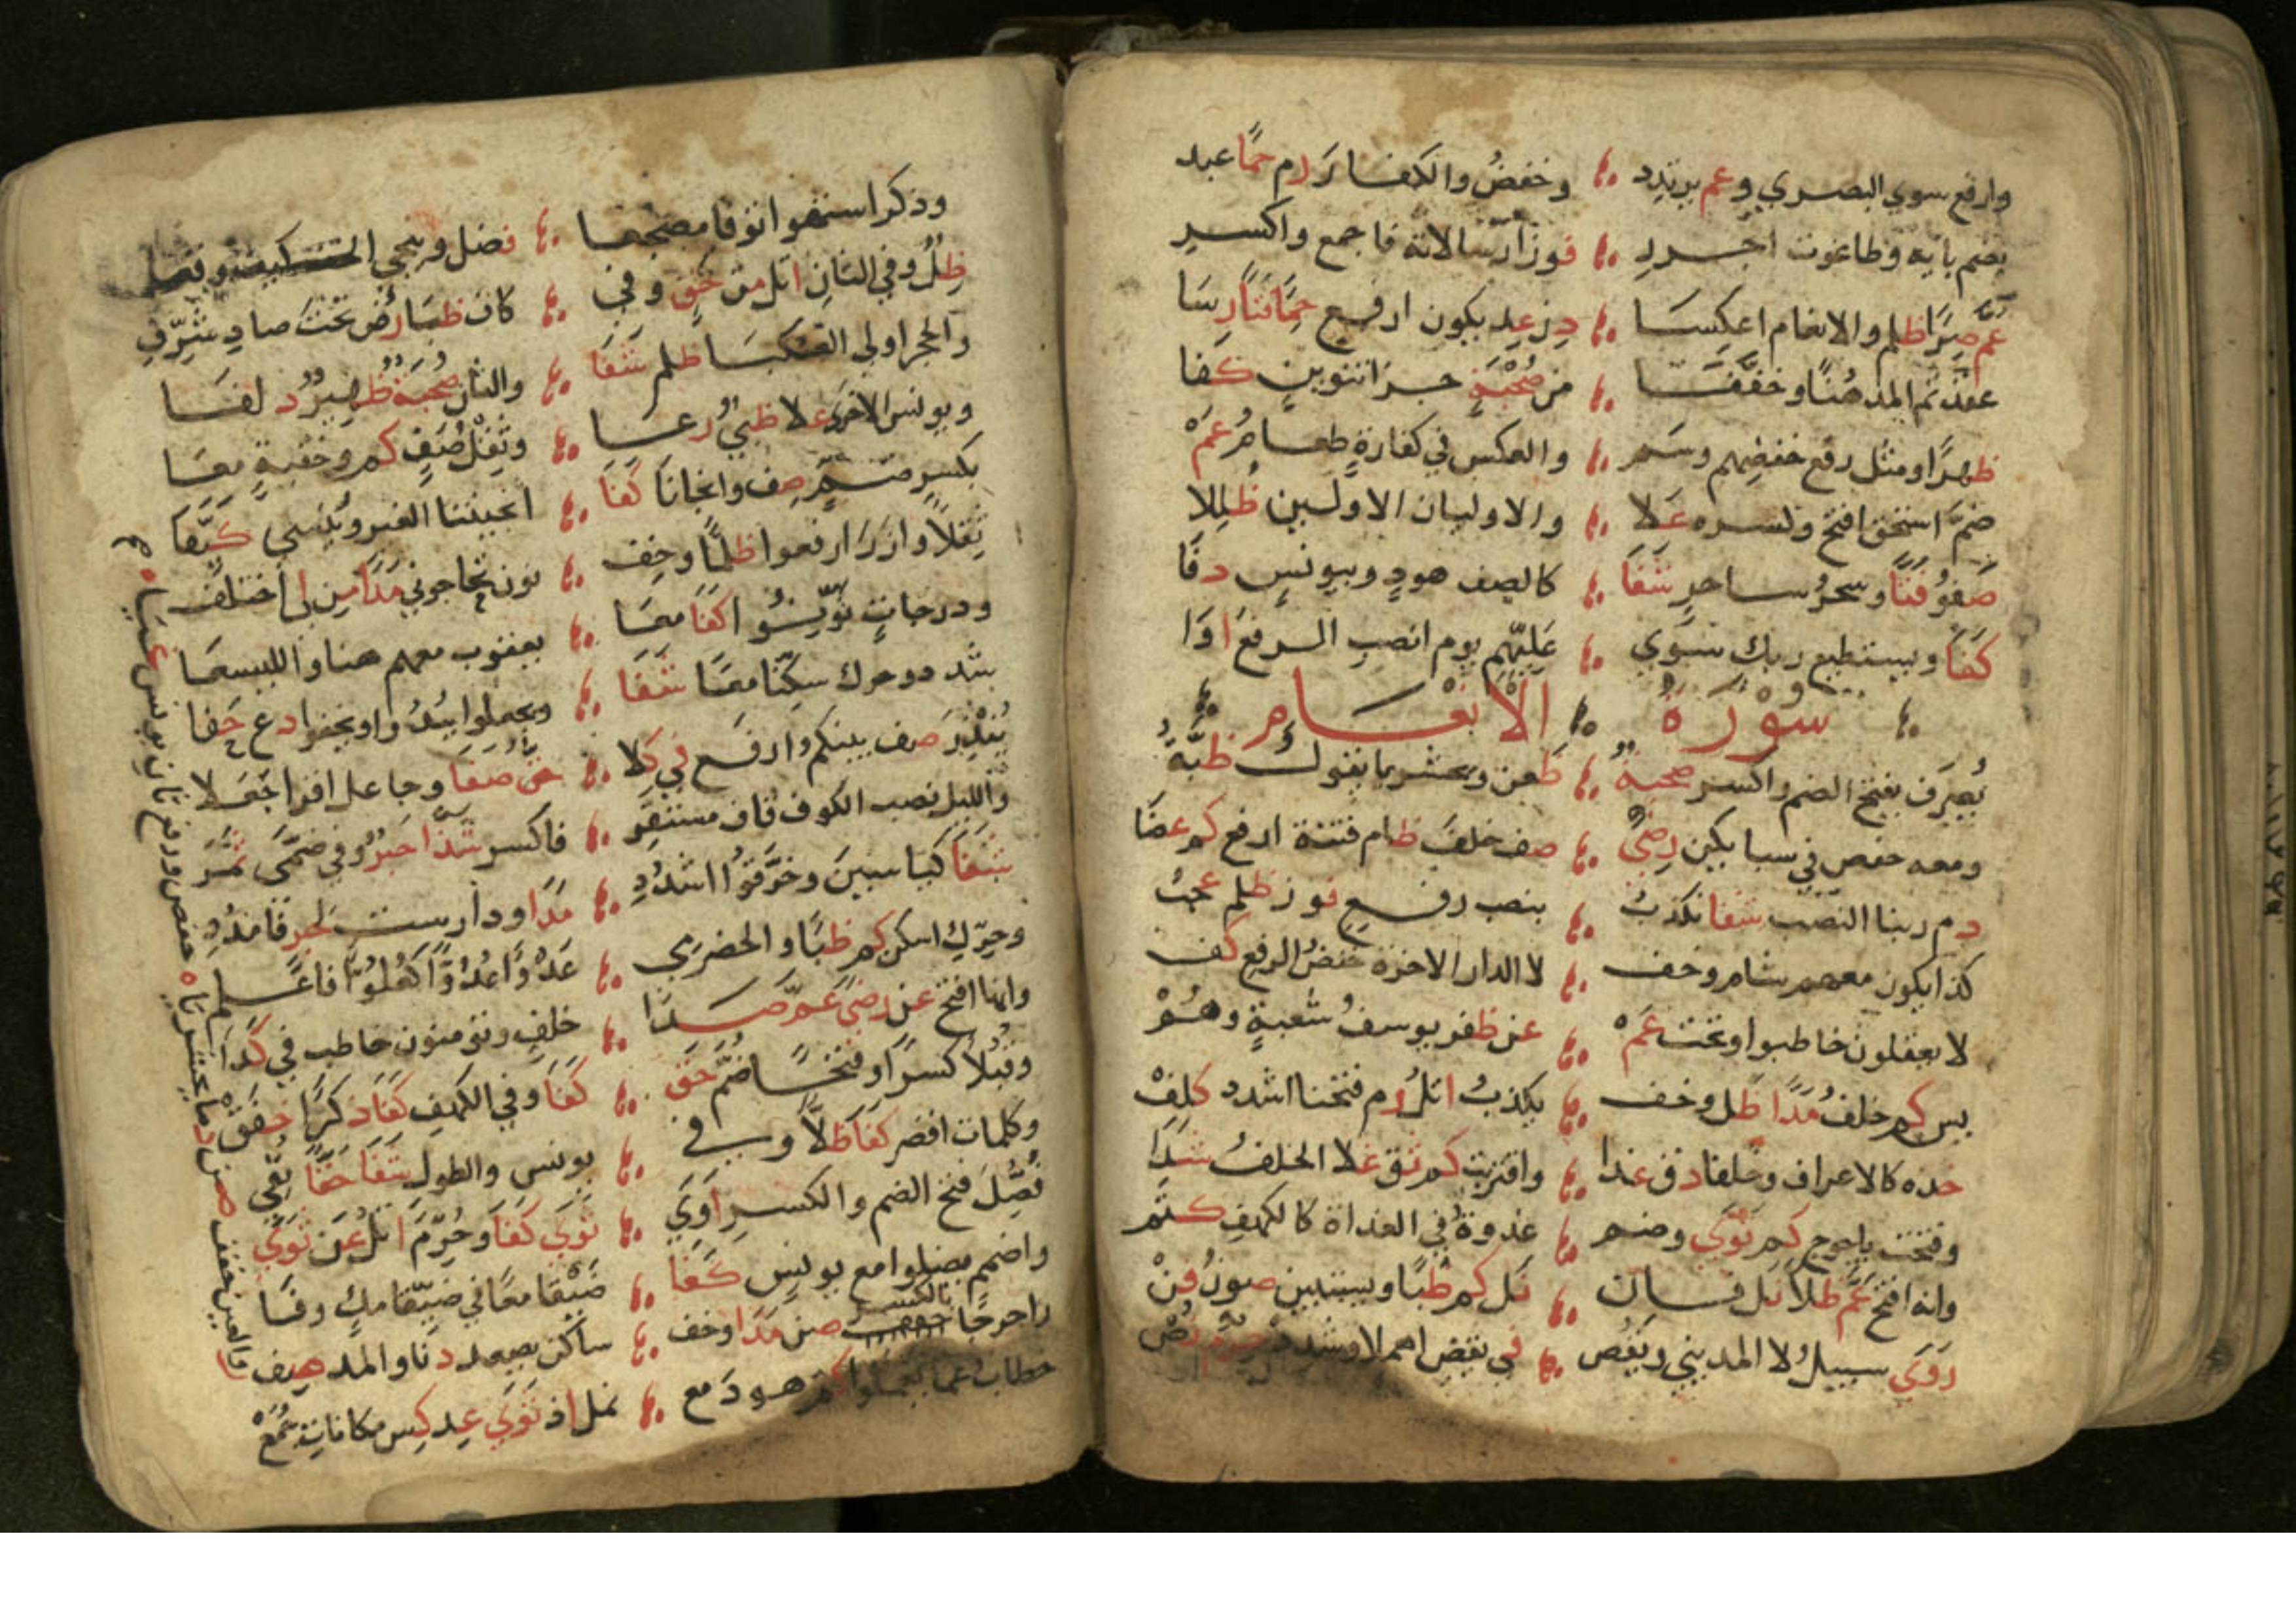 وارفع سوي البصري وعم يرتدد ؞ وخفض والكفار رم حمًا عبد
بضم بايه وطاغوت اجرر ؞ فوزا رسالاته فاجمع واكسر
عم صرًا ظلم والانعام اعكسا ؞ دن عد يكون ارفع حمًا فتًا رسا
عقدتم المد مُنًا وخففا ؞ من صُحْبَةٍ جزا تنوين كفا
ظهرًا ومثل رفع خفضهم وسم ؞ والعكس في كفارةٍ طعام عَمْ
ضم استحق افتح وكسره عَلا ؞ والاوليان الاولين ظللا
صَفوُ فتًا وسحرُ ساحر شَفَا ؞ كالصف هودٍ وبيونسٍ دفا
كَفَا ويستطيع ربك سوي ؞ عَلِيْهِم يوم انصب الرفعَ اوَا
؞ سورة ؞ الانعام ؞
يُصرَف بفتح الضم واكسر صحبةٌ ؞ ظَعن ويحشر يا نقول ظُبَّةٌ
ومعه حفص في سبا يكن رضيً ؞ صف خلفَ ظام فتنة ارفع كم عضَا
دم ربنا النصب شفا نكذبُ ؞ بنصب رفع فوز ظلم عجبُ
كذا يكون معهم شام وخف ؞ لا الدار الاخرة خفضُ الرفع كف
لا يعقلون خاطبوا وتحت عَمْ ؞ عن ظفر يوسفُ شعبةٍ وهُمْ
يس كم خلفُ مَدًا ظل وخف ؞ يكذبُ اتلُ رم فتحنا اشدد كلِفْ
خذه كالاعراف وخلفا دق غدا ؞ واقتربت كم ثق غلا الخلفُ شدَا
وفتحت ياجوج كم ثوَي وضم ؞ غدوةٌ في الغداة كالكهف كتم
وانه افتح عَم ظلا نل فان ؞ نل كم ظبًا ويستبين صونُ فنْ
رَوَي سبيلُ لا المديني ويقُص ؞ في يقض اهملا وشدد حرم نُصْ
وذكر استهوا توفا مضجعا ؞ فضل وينجي الخف كيف وقعا
ظِلٌ وفي الثانِ اتل من حَقٍ وفي ؞ كاف ظبَا رُض تحت صادٍ شَرِّفِ
والحجر اولي العنكبا ظلم شَفَا ؞ والثان صُحبَةٌ ظهيرٌ دلفَا
ويونس الاخري علا ظبيٌ رعَا ؞ وثِقْل صُفٍ كم وخفيةٍ معَا
بكسر ضمٍ صِف وانجانا كفَا ؞ انجيتنا الغير ويُنسي كيَّفَا
ثِقْلاً وازرَ ارفعوا ظلمًا وخِف ؞ نون تحاجوني مَدًا مِن لي اختلف
ودرجاتٍ نوِّنُوا كفَا معَا ؞ يعقوب معهم هنا والليسعا
شدد وحرك سكنا معًا شَفَا ؞ ويجعلوا يبدُ وا ويخفوا دع حَفا
يُنْذِرَ صف بينكم ارفع في كلا ؞ حقٍ صَفَا وجاعل اقرا جَعَلا
والليل نصب الكوف قاف مستقر ؞ فاكسر شذًا حَبْرٌ وفي ضمَّى ثمر
شَفَا كيَاسِينَ وخرَّقوُا اشدُدِ ؞ مَدًا ودارست لحبر فامدُدِ
وحرِّك اسكن كم ظبًا والحضرمي ؞ عَدْوًا عُدُوًّا كَعُلُوًّا فاعلم
وانها افتح عن رضيً عم صدَا ؞ خلفٍ ونؤمنون خاطب في كدا
وقبلاً كسرًا وفتحًا ضم حق ؞ كفَا وفي الكهف كفَا ذكرًا خفق
وكلمات اقصر كفَا ظلاً وفي ؞ يونس والطول شفَا حقًا نُفِي
فُصِّلَ فتح الضم والكسر اوَي ؞ ثوَي كفَا وحُرِّم اتلُ عن ثوَي
واضمم يضلوا مع يونس كفَا ؞ ضَيْقا معًا في ضيّقا مكٍ وفَا
راحرجًا بالكسر صن مَدًا وخف ؞ ساكن يصعد دنا والمد صِف
خطاب عما يعملوا كم هود مع ؞ نمل اذ ثوَي عِد كِس مكانات جَمَعْ